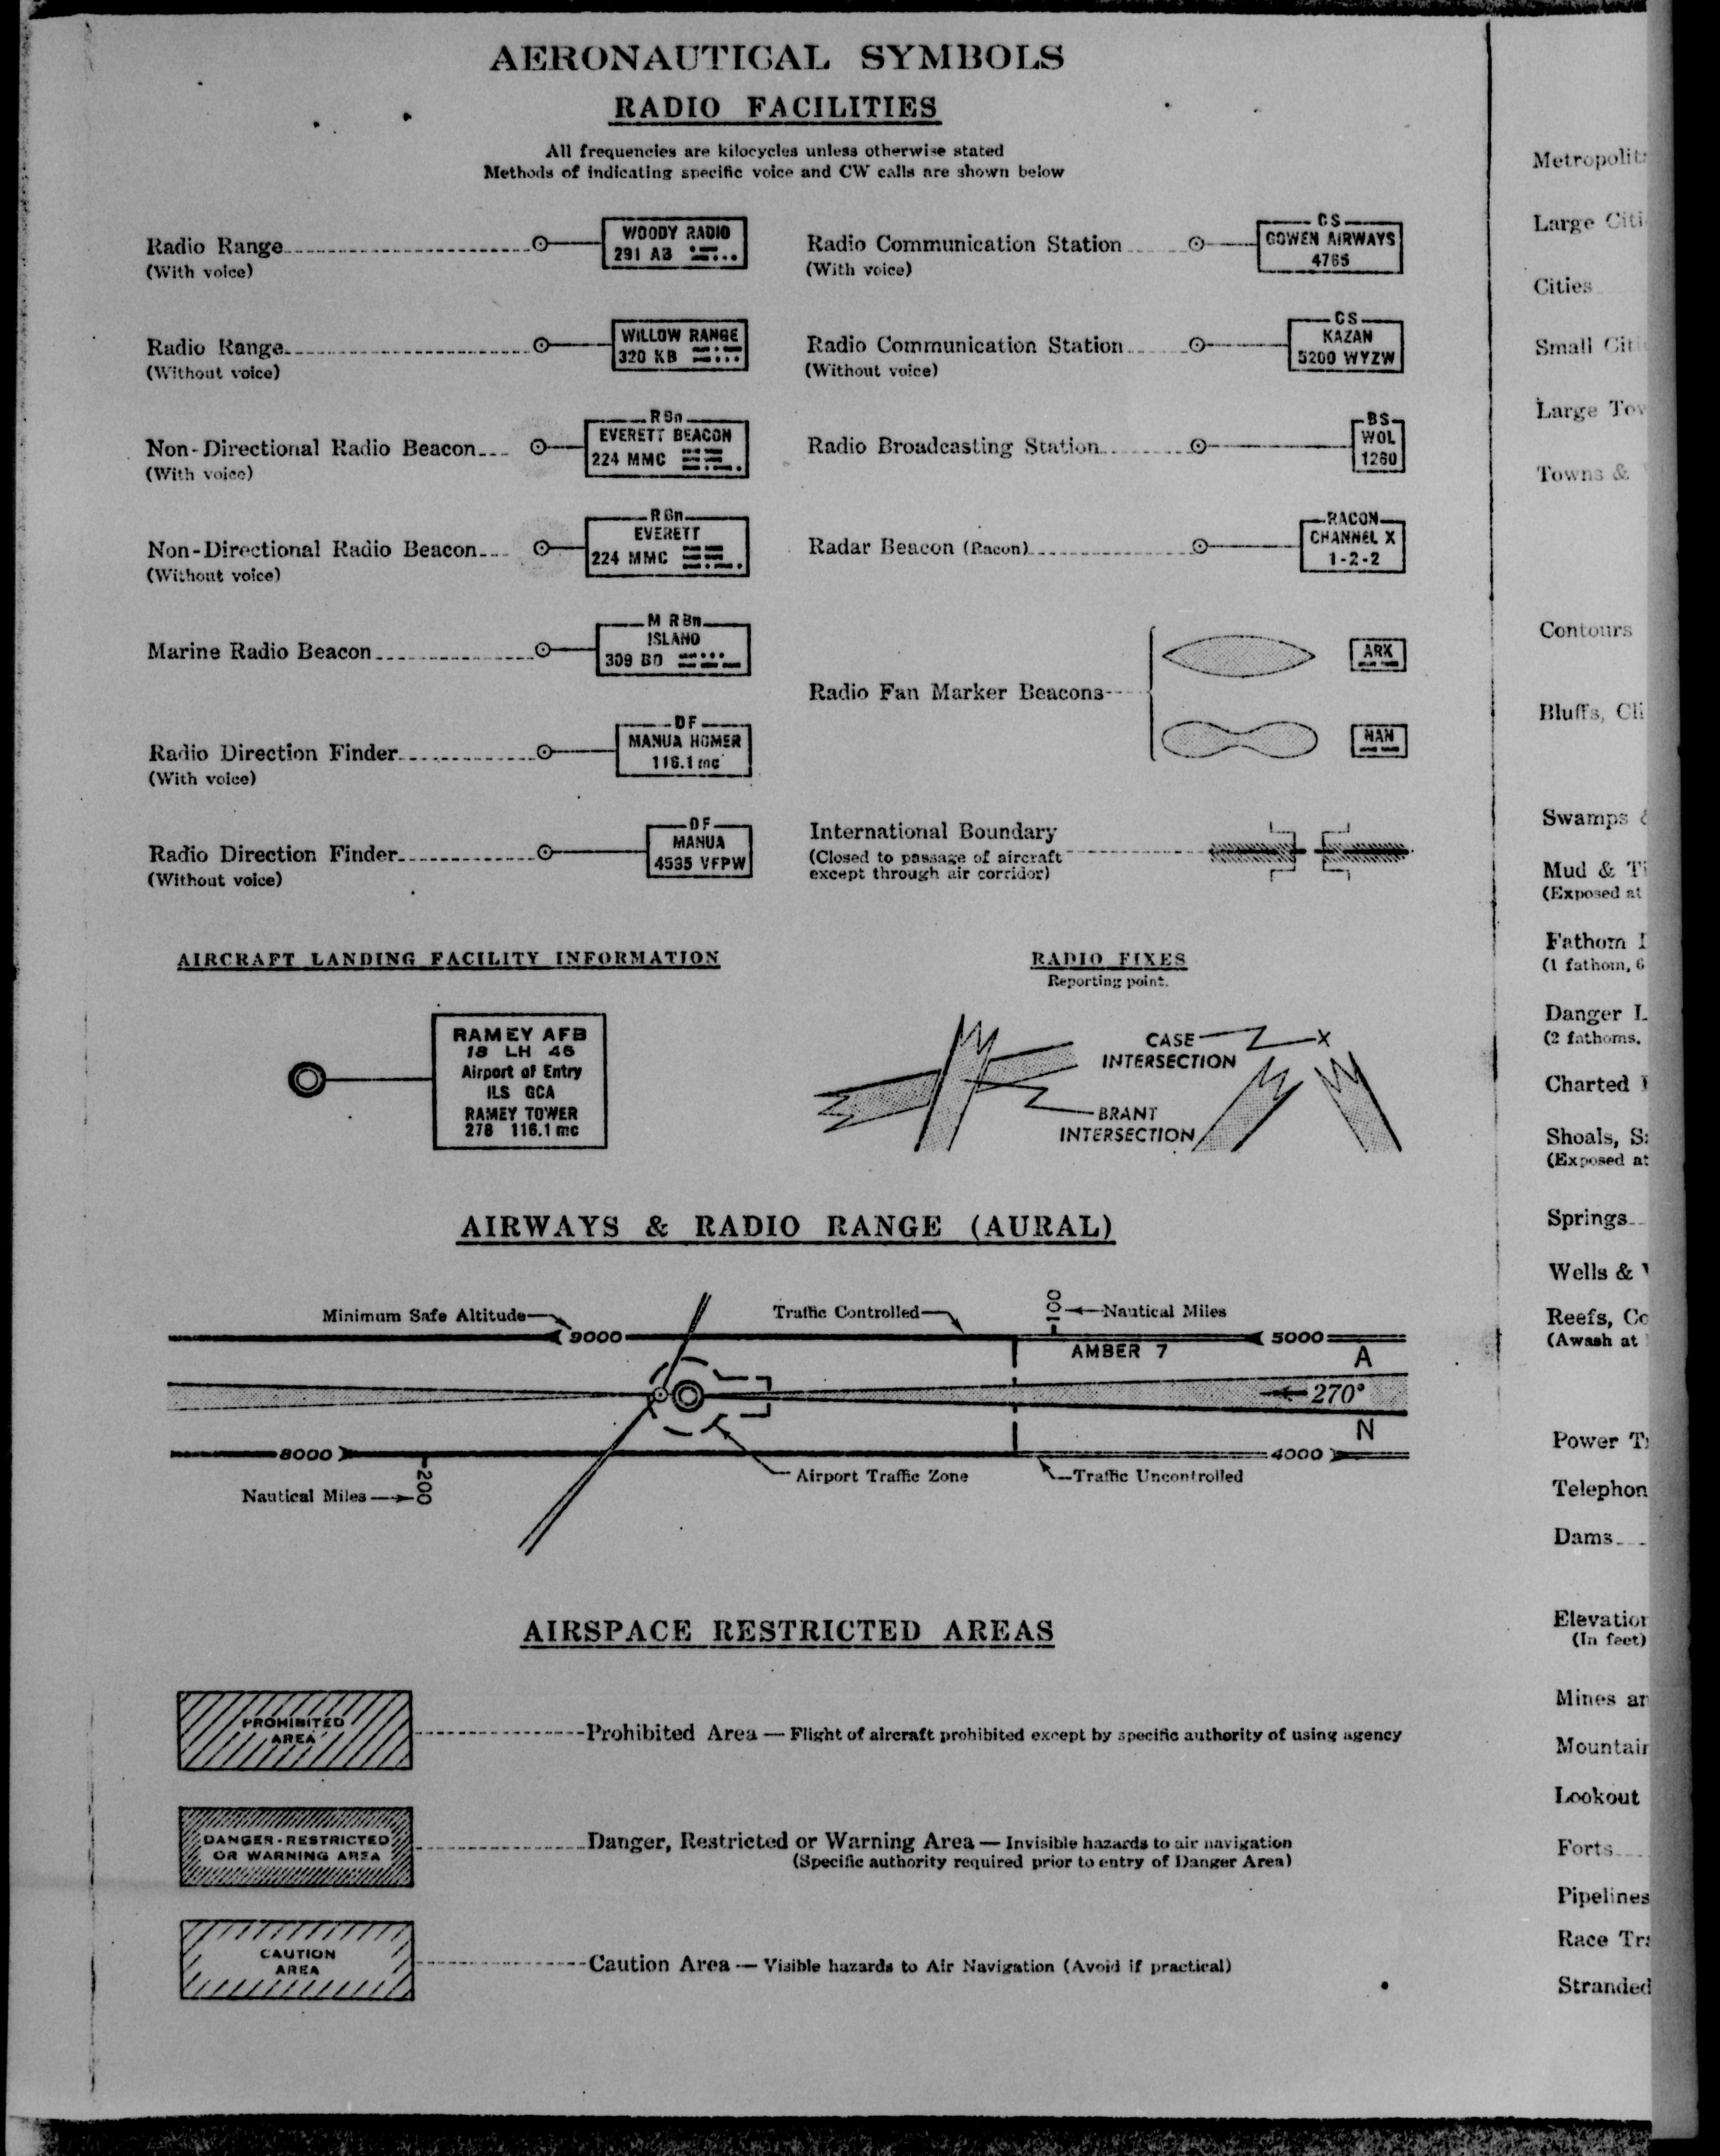 AERONAUTICAL SYMBOLS
RADIO FACILITIES
All frequencies are kilocycles unless otherwise stated
Methods of indicating specific voice and CW calls are shown below
Radio Range
(With voice)
WOODY RADIO
291 AB
Radio Range
(Without voice)
WILLOW RANGE
320 KB
Non-Directional Radio Beacon
(With voice)
R Bn
EVERETT BEACON
224 MMC
Non-Directional Radio Beacon
(Without voice)
R Bn
EVERETT
224 MMC
Marine Radio Beacon
M R Bn
ISLAND
309 BO
Radio Direction Finder
(With voice)
DF
MANUA HOMER
116.1 mc
Radio Direction Finder
(Without voice)
DF
MANUA
4535 VFPW
Radio Communication Station
(With voice)
CS
GOWEN AIRWAYS
4765
Radio Communication Station
(Without voice)
CS
KAZAN
5200 WYZW
Radio Broadcasting Station
BS
WOL
1260
Radar Beacon (Racon)
RACON
CHANNEL X
1-2-2
Radio Fan Marker Beacons
ARK
NAN
International Boundary
(Closed to passage of aircraft
except through air corridor)
AIRCRAFT LANDING FACILITY INFORMATION
RAMEY AFB
18 LH 46
Airport of Entry
ILS GCA
RAMEY TOWER
278 116.1 mc
RADIO FIXES
Reporting point.
CASE
INTERSECTION
X
BRANT
INTERSECTION
AIRWAYS & RADIO RANGE (AURAL)
Minimum Safe Altitude
Traffic Controlled
100
Nautical Miles
9000
5000
AMBER 7
A
270°
N
8000
4000
200
Nautical Miles
Airport Traffic Zone
Traffic Uncontrolled
AIRSPACE RESTRICTED AREAS
PROHIBITED
AREA
Prohibited Area — Flight of aircraft prohibited except by specific authority of using agency
DANGER-RESTRICTED
OR WARNING AREA
Danger, Restricted or Warning Area — Invisible hazards to air navigation
(Specific authority required prior to entry of Danger Area)
CAUTION
AREA
Caution Area — Visible hazards to Air Navigation (Avoid if practical)
Metropolit
Large Citi
Cities
Small Citi
Large Tow
Towns &
Contours
Bluffs, Cli
Swamps &
Mud & Ti
(Exposed at
Fathom
(1 fathom, 6
Danger L
(2 fathoms.
Charted
Shoals, S
(Exposed at
Springs
Wells &
Reefs, Co
(Awash at
Power T
Telephon
Dams
Elevation
(In feet)
Mines an
Mountain
Lookout
Forts
Pipelines
Race Tra
Stranded